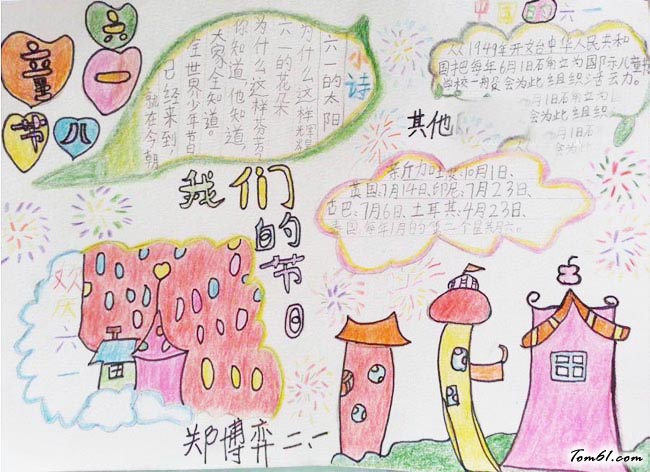 六一
儿童节
小诗
六一的太阳
为什么这样辉煌
六一的花朵
为什么这样芬芳
你知道,他知道,
大家全知道。
全世界少年节日
已经来到,
就在今朝
中国的六一
1949年开文台中华人民共和
国把每年6月1日
为国际儿童节
学校一般会为此组织
6月1日
会为此组织
其他
10月1日、
英国:7月14日、印尼:7月23日、
古巴:7月6日、土耳其:4月23日、
每年1月的第二个星期六。
我们的节日
欢庆六一
郑博弈 二、一
Tom61.com